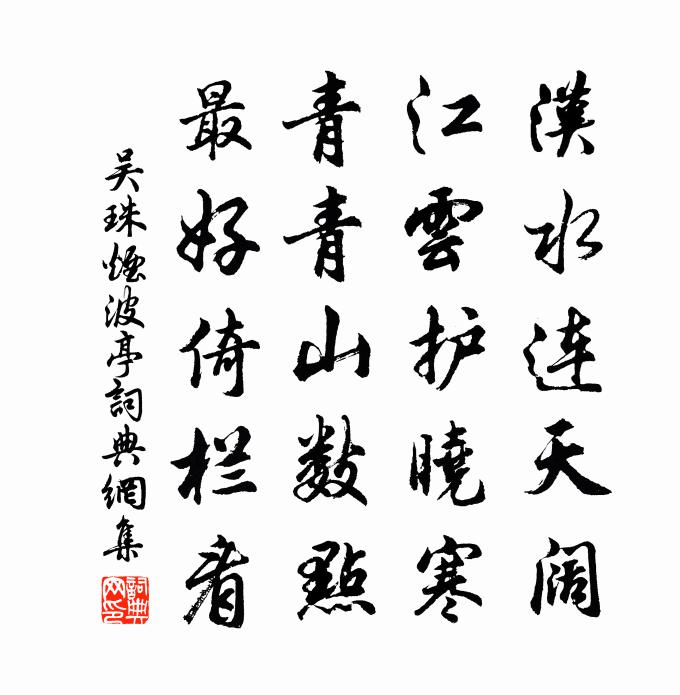 漢水连天阔
江雲护曉寒
青青山数點
最好倚栏看
吴珠煙波亭詞典網集
詞典网印